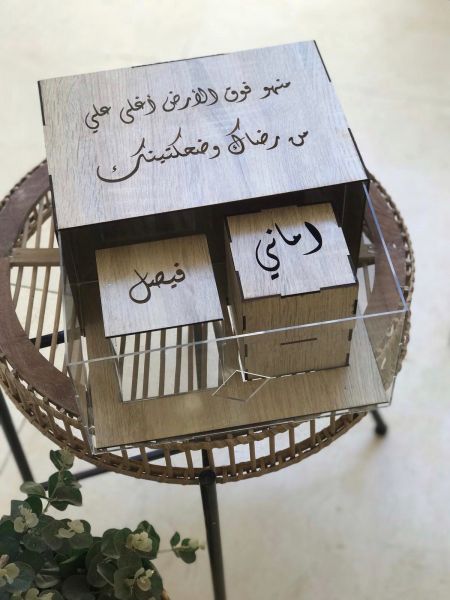 منهو فوق الأرض أغلى علي
من رضاك وضحكتينك
اماني
فيصل